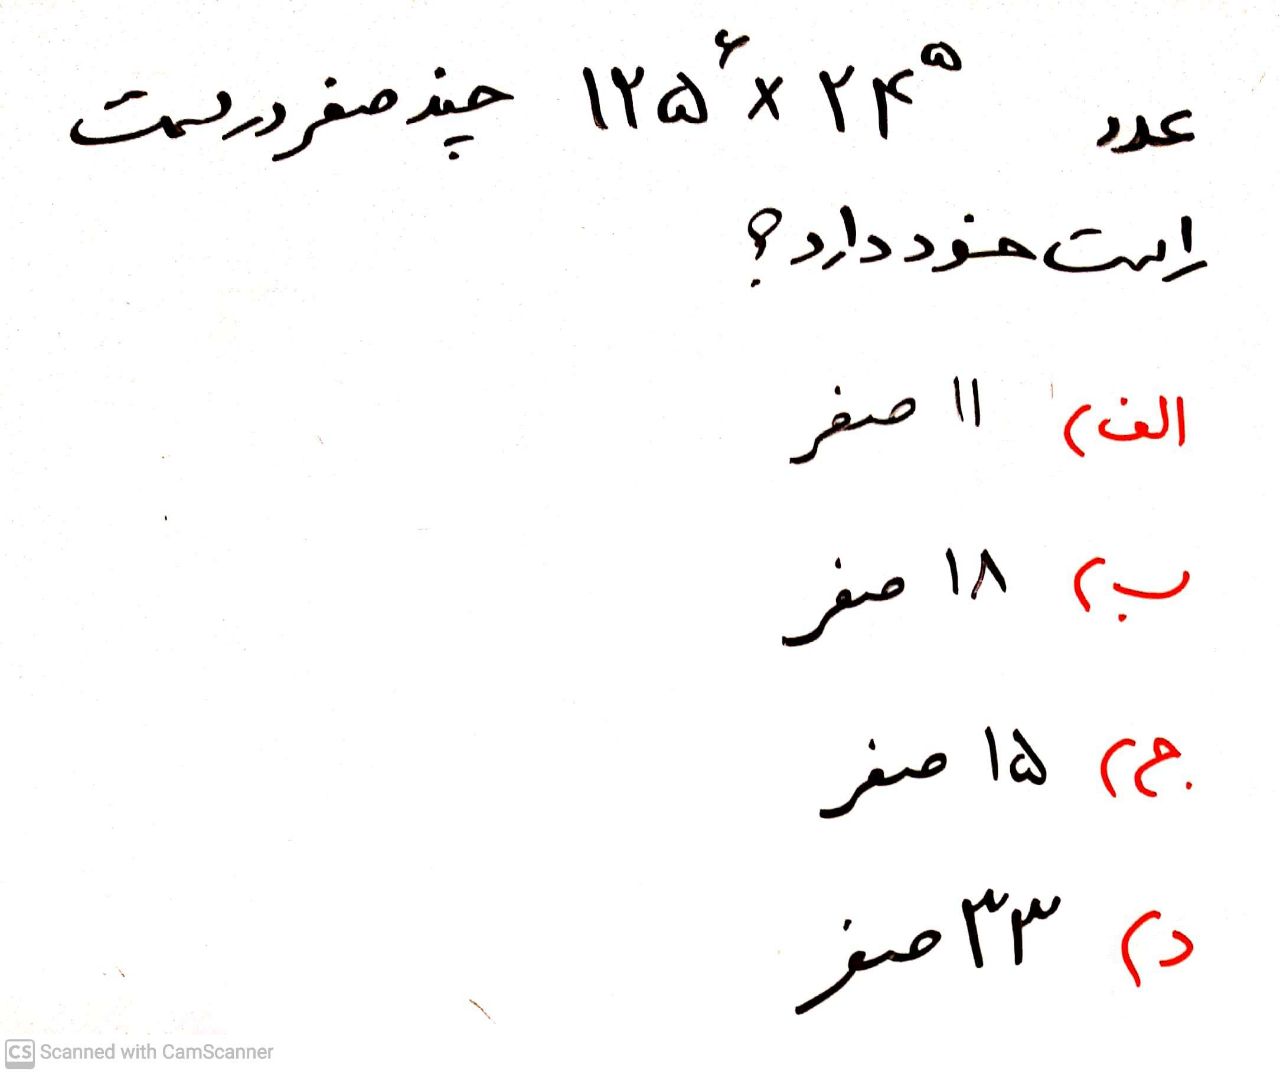 عدد ۱۲۵^۶ × ۲۴^۵ چند صفر در سمت
راست خود دارد؟
الف) ۱۱ صفر
ب) ۱۸ صفر
ج) ۱۵ صفر
د) ۳۳ صفر
CS Scanned with CamScanner